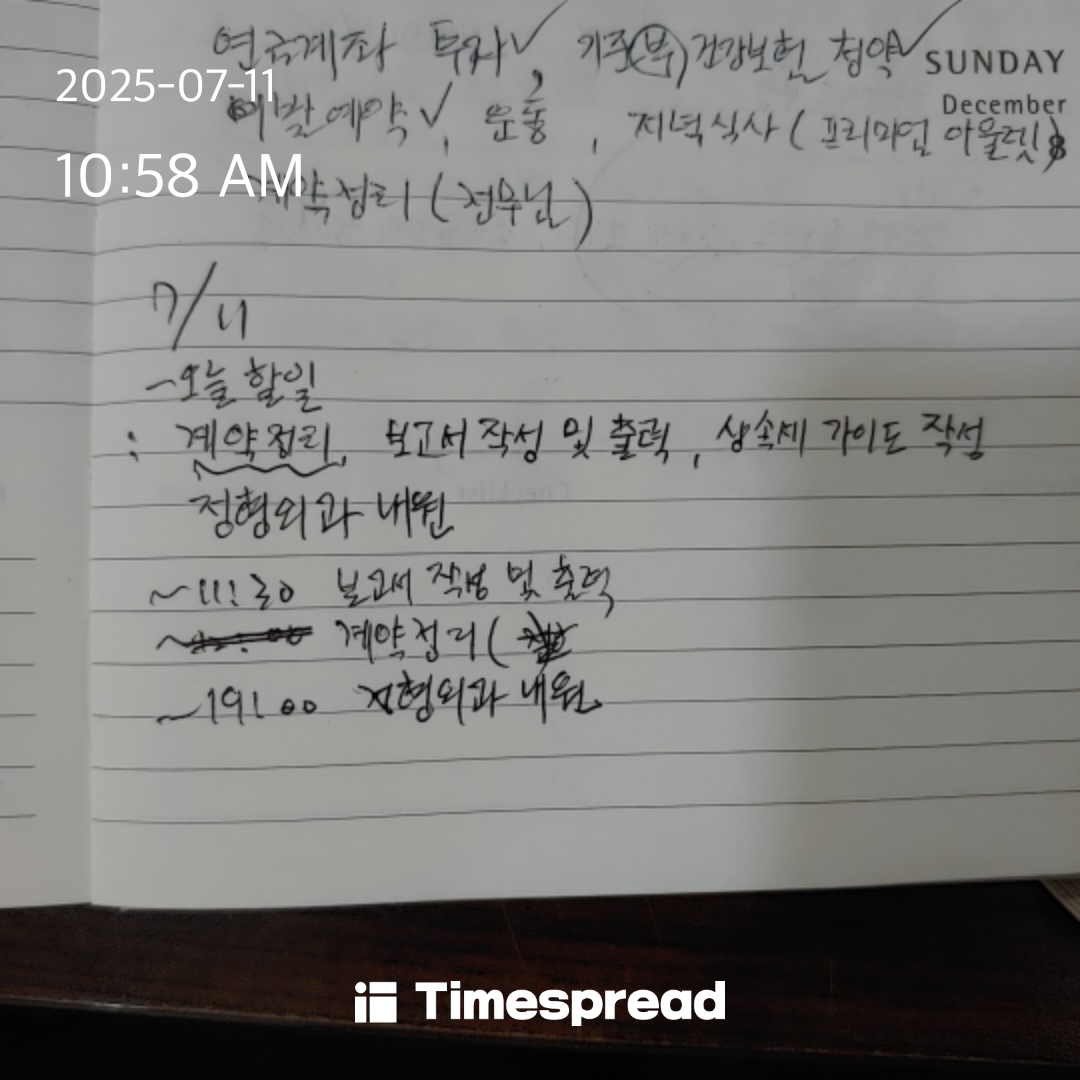 연금계좌 투자✓, 기준(부) 건강보험 청약✓
SUNDAY
December
2025-07-11
이발예약✓, 운동, 저녁식사 (프리미엄 아울렛)
10:58 AM
계약정리 (전무님)
7/11
-오늘 할일
: 계약정리, 보고서 작성 및 출력, 상속세 가이드 작성
정형외과 내원
~11:30 보고서 작성 및 출력
~ 계약정리 (
~19:00 정형외과 내원
Timespread